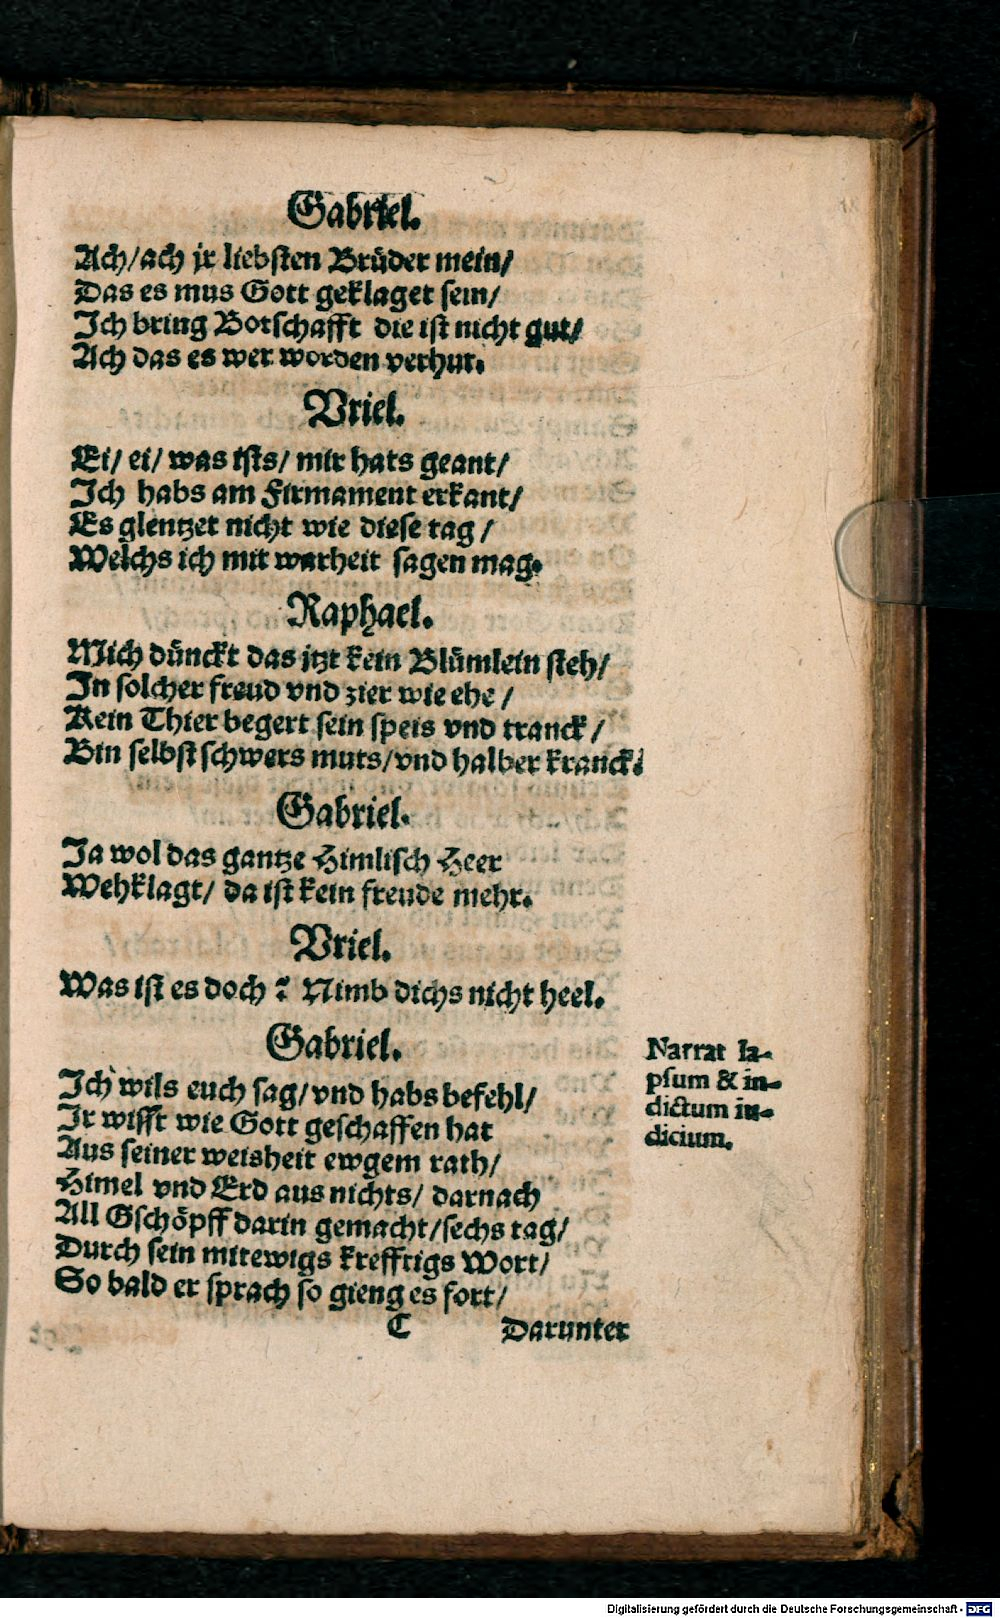 Gabriel.
Ach/ach jr liebsten Brüder mein/
Das es mus Gott geklaget sein/
Ich bring Botschafft die ist nicht gut/
Ach das es wer worden verhut.
Vriel.
Ei/ ei/ was ists/ mir hats geant/
Ich habs am Firmament erkant/
Es glentzet nicht wie diese tag/
Welchs ich mit warheit sagen mag.
Raphael.
Mich dünckt das jtzt kein Blümlein steh/
In solcher freud vnd zier wie ehe/
Kein Thier begert sein speis vnd tranck/
Bin selbst schwers muts/vnd halber kranck.
Gabriel.
Ja wol das gantze Himlisch Heer
Wehklagt/ da ist kein freude mehr.
Vriel.
Was ist es doch? Nimb dichs nicht heel.
Gabriel.
Ich wils euch sag/vnd habs befehl/
Ir wisst wie Gott geschaffen hat
Aus seiner weisheit ewgem rath/
Himel vnd Erd aus nichts/ darnach
All Gschöpff darin gemacht/sechs tag/
Durch sein mitewigs krefftigs Wort/
So bald er sprach so gieng es fort/
C Darunter
Narrat la-
psum & in-
dictum iu-
dicium.
Digitalisierung gefördert durch die Deutsche Forschungsgemeinschaft - DFG